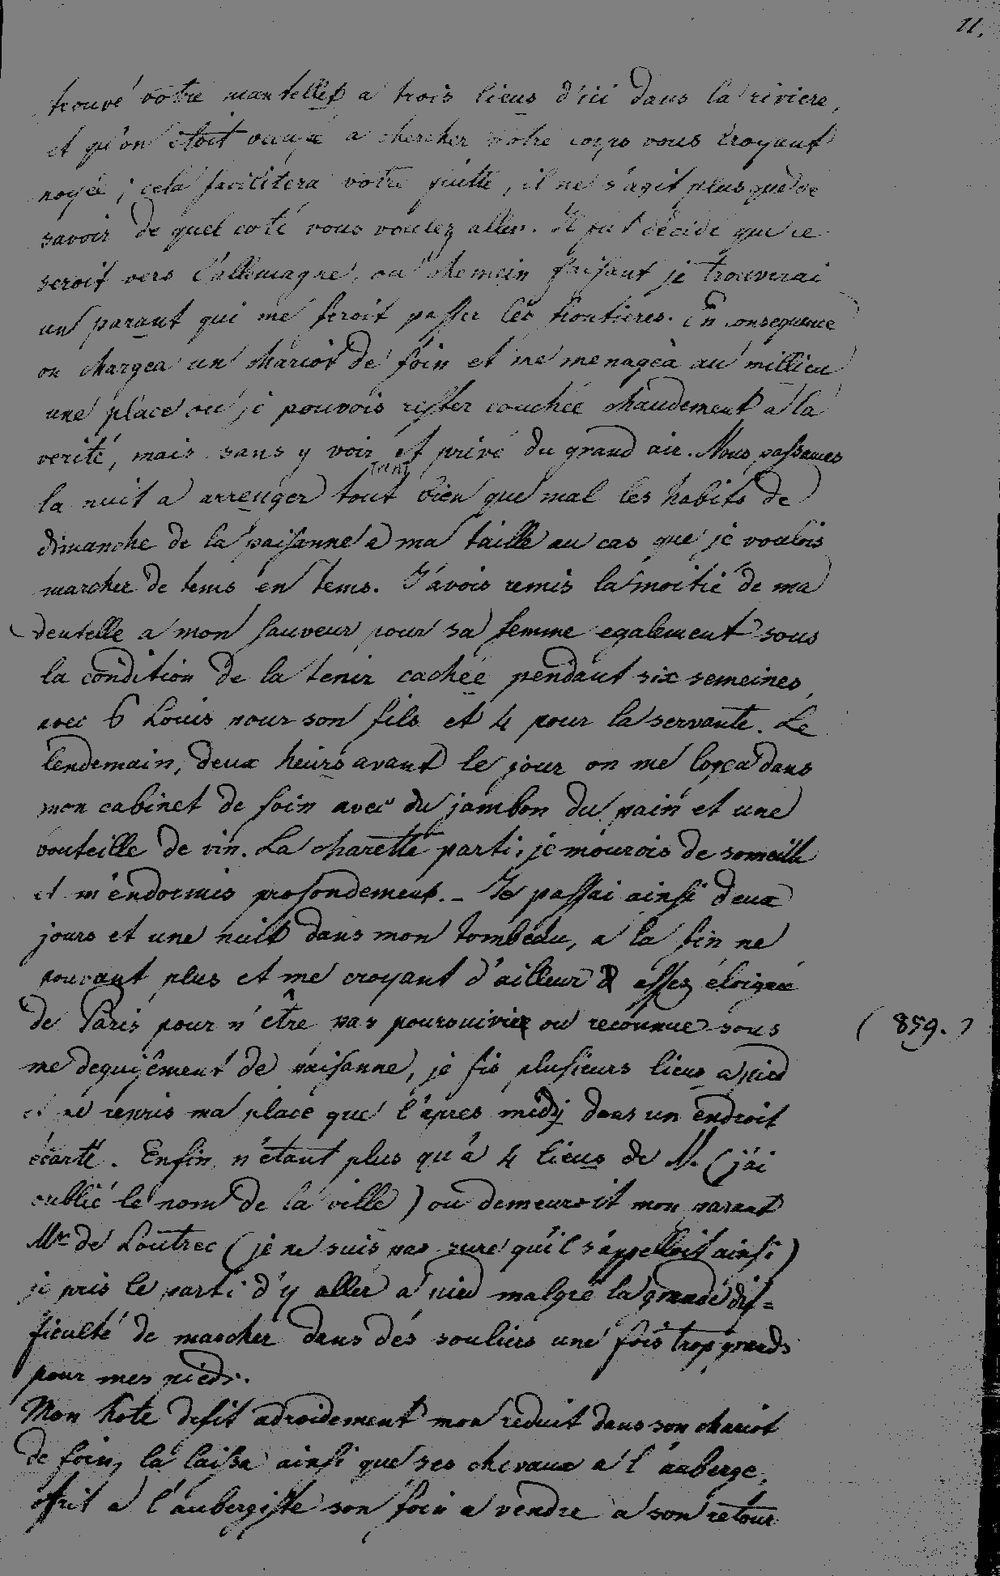 11.
trouvé votre mantellet a trois lieus d'ici dans la riviere,
et qu'on étoit occupé a chercher votre corps vous croyant
noyée ; cela facilitera votre fuitte, il ne s'agit plus que de
savoir de quel coté vous voulez aller. Il fut décidé que ce
seroit vers l'allemagne, ou chemein faisant je trouverai
un parant qui me feroit passer les frontières. En consequence
on chargea un chariot de foin et me menagea au millieu
une place ou je pouvois rester couchée chaudement a la
verité, mais sans y voir et privé du grand air. Nous passames
la nuit a arrenger tant bien que mal les habits de
dimanche de la païsanne a ma taille au cas que je voulois
marcher de tems en tems. J'avois remis la moitié de ma
dentelle a mon sauveur pour sa femme egalement sous
la condition de la tenir cachée pendant six semeines,
avec 6 Louis pour son fils et 4 pour la servante. Le
lendemain, deux heurs avant le jour on me logea dans
mon cabinet de foin avec du jambon du pain et une
bouteille de vin. La charette parti, je mourois de someille
et m'endormis profondement. – Je passai ainsi deux
jours et une nuit dans mon tombeau, a la fin ne
pouvant plus et me croyant d'ailleur assez éloignée
de Paris pour n'être pas poursuivie ou reconnue sous
me deguisement de païsanne, je fis plusieurs lieus a pied
et ne repris ma place que l'apres midy dans un endroit
écarté. Enfin n'étant plus qu'à 4 lieus de M. (j'ai
oublié le nom de la ville) ou demeuroit mon parant
Mr. de Loutrec (je ne suis pas sure qu'il s'appelloit ainsi)
je pris le parti d'y aller a pied malgré la grande dif=
ficulté de marcher dans des souliers une fois trop grands
pour mes pieds.
Mon hote defit adroidement mon réduit dans son chariot
de foin, la laissa ainsi que ses chevaux a l'auberge,
offrit a l'aubergiste son foin a vendre a son retour
(859.)